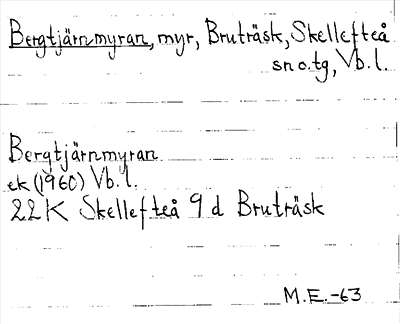 Bergtjärnmyran, myr, Bruträsk, Skellefteå
sn o. tg, Vb. l.
Bergtjärnmyran
ek (1960) Vb. l.
22K Skellefteå 9 d Bruträsk
M.E. -63